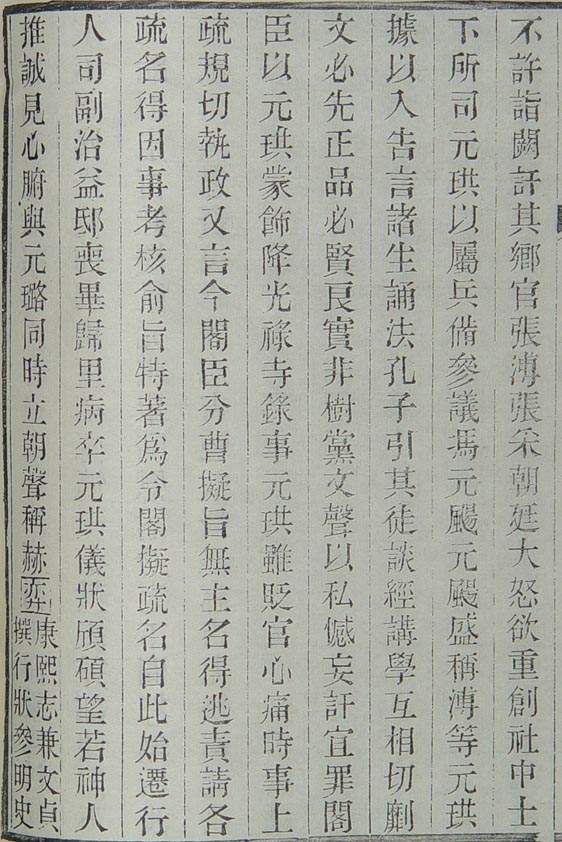 不許詣闕訐其鄉官張溥張采朝廷大怒欲重創社中士
下所司元珙以屬兵備參議馮元颺元颺盛稱溥等元珙
據以入告言諸生誦法孔子引其徒談經講學互相切劘
文必先正品必賢良實非樹黨文聲以私憾妄訐宜罪閣
臣以元珙蒙飾降光祿寺錄事元珙雖貶官心痛時事上
疏規切執政又言今閣臣分曹擬旨無主名得逃責請各
疏名得因事考核俞旨特著爲令閣擬疏名自此始遷行
人司副治益邸喪畢歸里病卒元珙儀狀頎碩望若神人
推誠見心腑與元璐同時立朝聲稱赫弈
康熙志兼文貞
撰行狀參明史